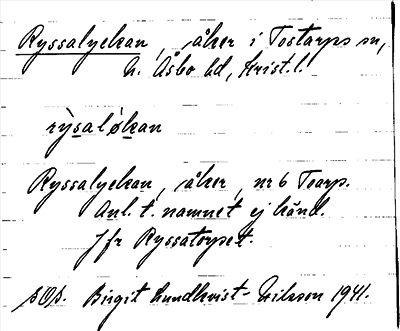 Ryssalyckan, åker i Tostarps sn,
N. Åsbo hd, Krist. l.
rỳsaløkan
Ryssalyckan, åker, nr 6 Tearp.
Anl. t. namnet ej känd.
Jfr Ryssatorpet.
sOp. Birgit Lundkvist-Nilsson 1941.